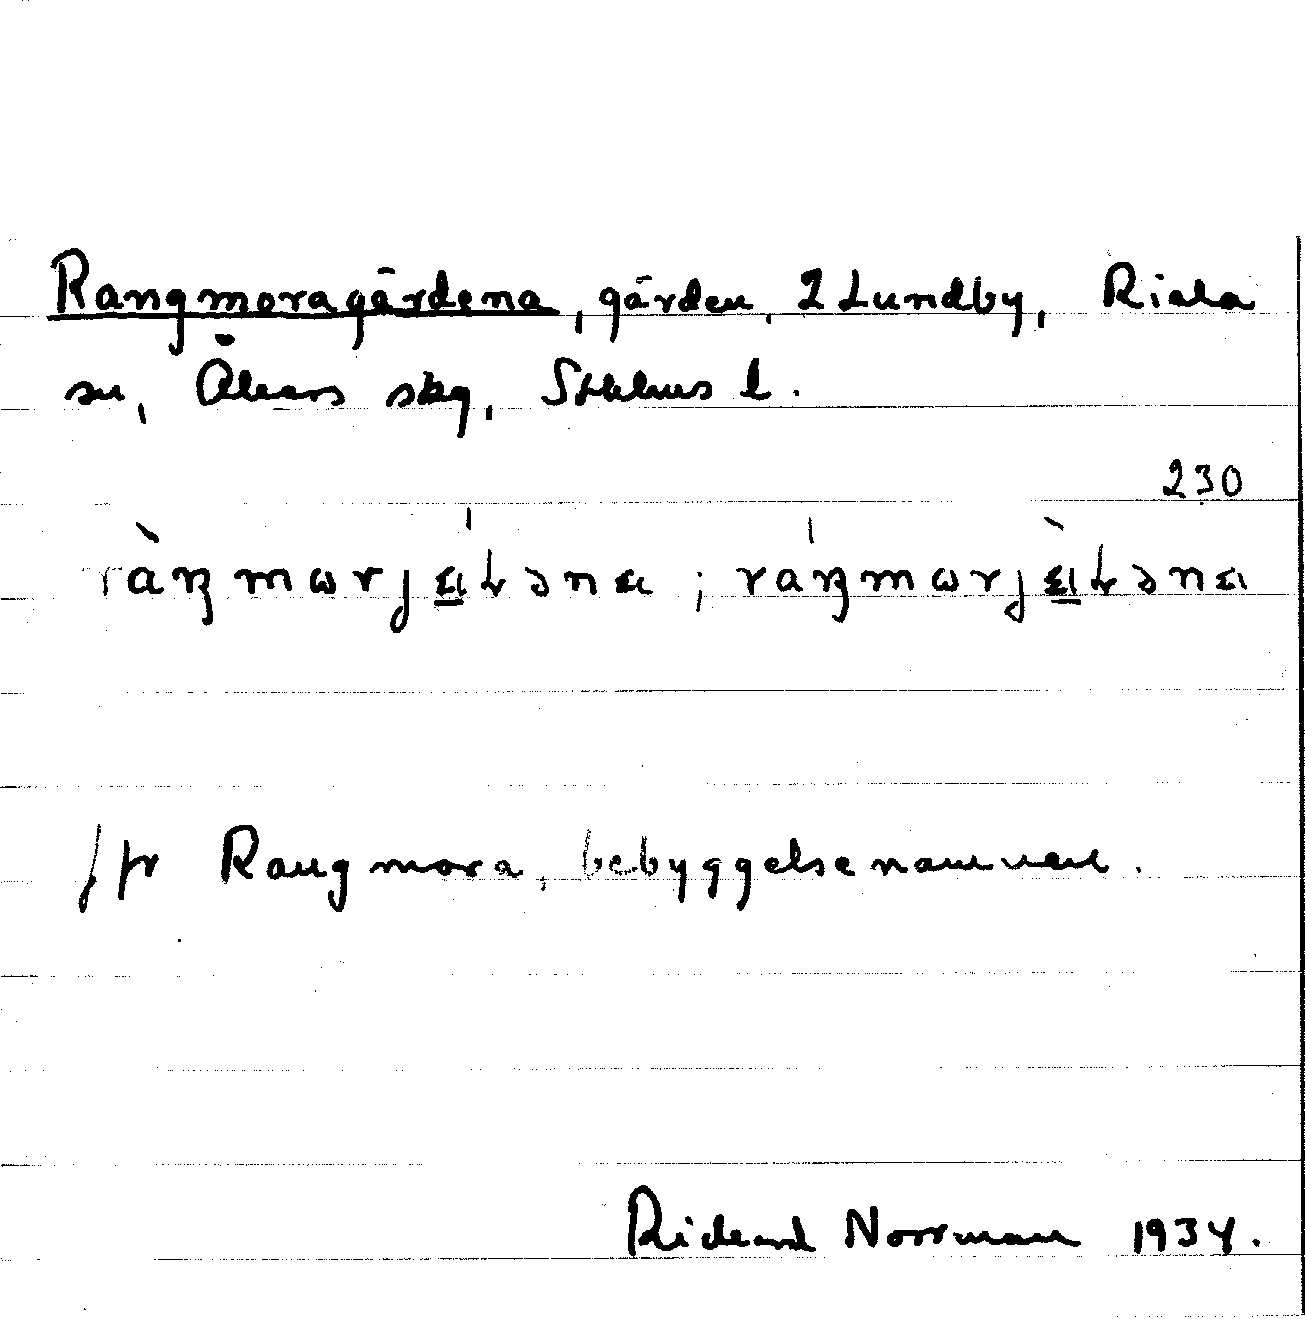 Rangmoragårdena, gården, 2 Lundby, Riala
sn, Åkers skg, Sthlms l.
230
ràŋmωrɟ ; ráŋmωrɟ
jfr Rangmora, bebyggelsenamnen.
Rickard Norrman 1934.